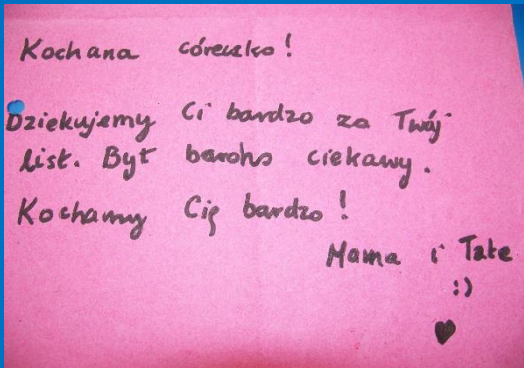 Kochana córeczko!
Dziekujemy Ci bardzo za Twój
list. Był bardzo ciekawy.
Kochamy Cię bardzo!
Mama i Tate
:)
♥